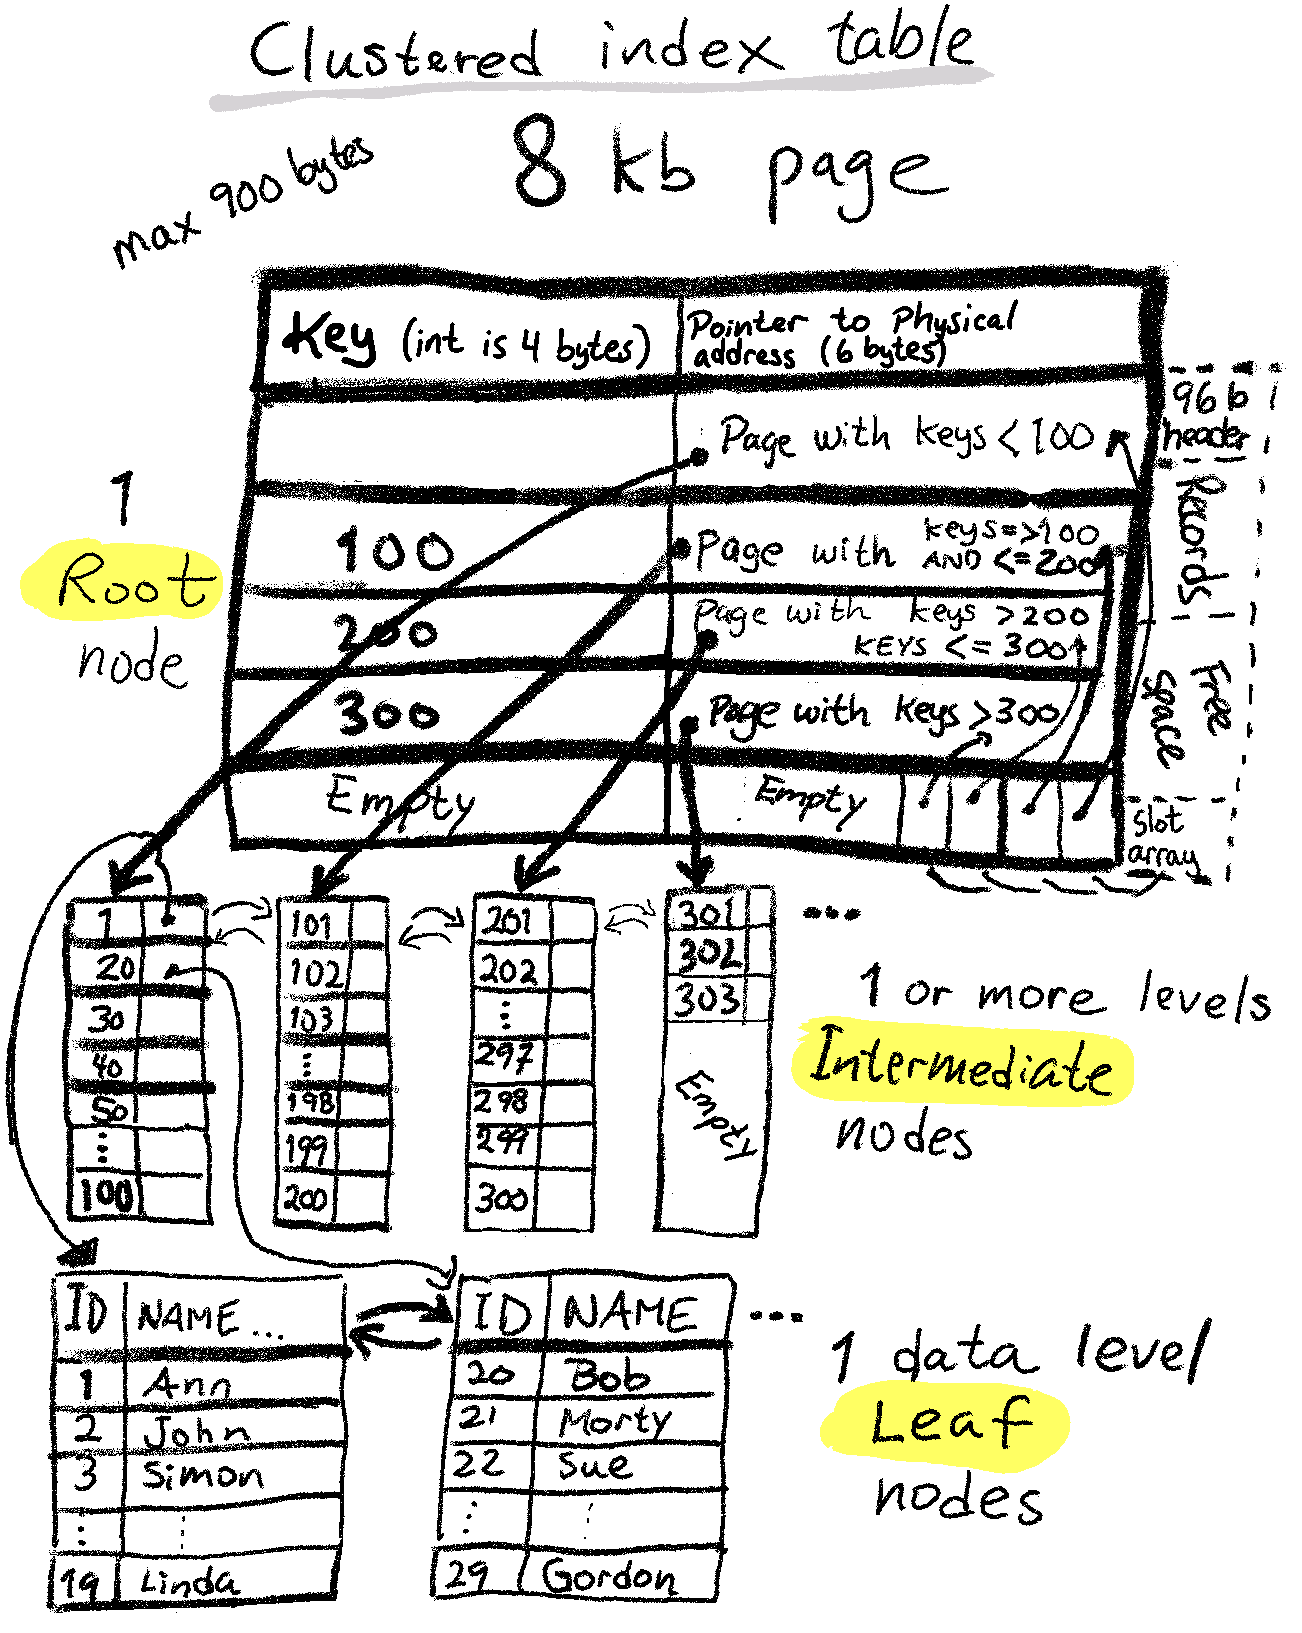 Clustered index table
8 kb page
max 900 bytes
Key (int is 4 bytes)
Pointer to Physical
address (6 bytes)
Page with keys < 100
100
Page with keys=>100
AND <=200
200
Page with keys >200
KEYS <= 300
300
Page with keys >300
Empty
Empty
96 b
header
Records
Free
space
slot
array
1
Root
node
1
20
30
40
50
⋮
100
101
102
103
⋮
198
199
200
201
202
⋮
297
298
299
300
301
302
303
Empty
...
1 or more levels
Intermediate
nodes
ID NAME...
1 Ann
2 John
3 Simon
⋮ ⋮
19 Linda
ID NAME
20 Bob
21 Morty
22 Sue
⋮ ⋮
29 Gordon
...
1 data level
Leaf
nodes